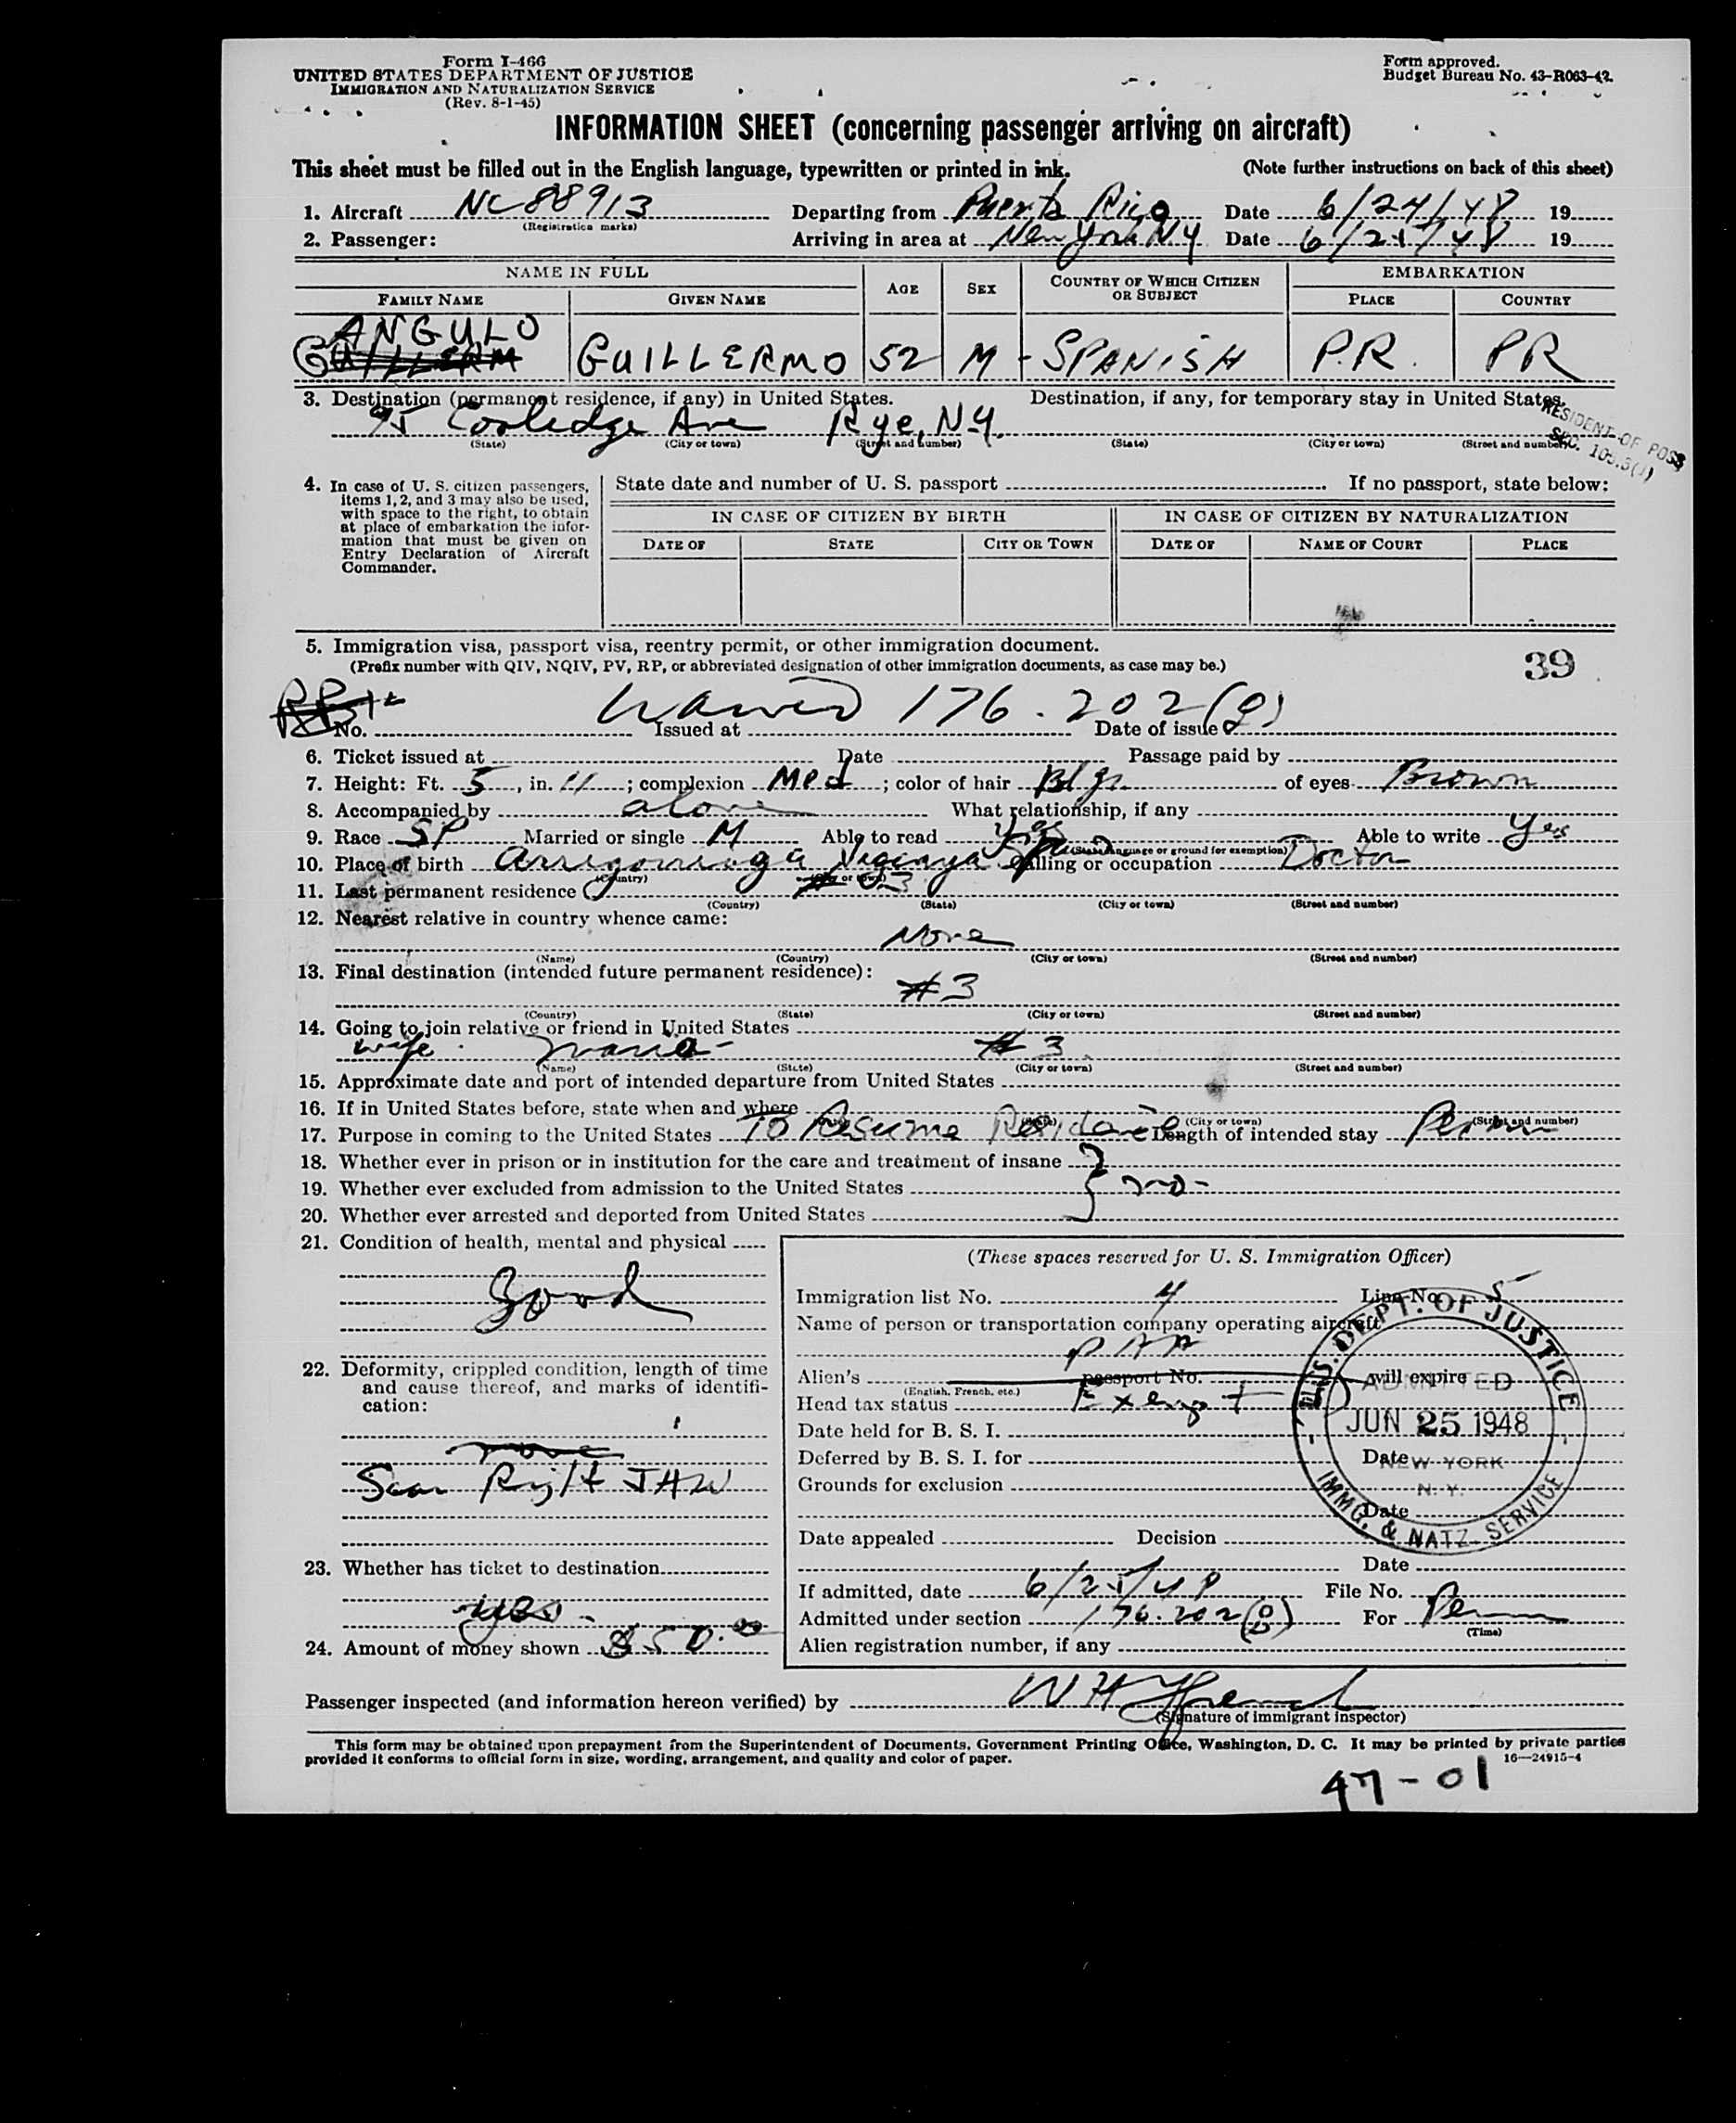 Form I-466
UNITED STATES DEPARTMENT OF JUSTICE
IMMIGRATION AND NATURALIZATION SERVICE
(Rev. 8-1-45)
Form approved.
Budget Bureau No. 43-R063-42.
INFORMATION SHEET (concerning passenger arriving on aircraft)
This sheet must be filled out in the English language, typewritten or printed in ink. (Note further instructions on back of this sheet)
1. Aircraft NC88913 Departing from Puerto Rico Date 6/24/48 19
(Registration marks)
2. Passenger: Arriving in area at New York NY Date 6/25/48 19
NAME IN FULL AGE SEX COUNTRY OF WHICH CITIZEN OR SUBJECT EMBARKATION
FAMILY NAME GIVEN NAME PLACE COUNTRY
ANGULO
GUILLERM GUILLERMO 52 M - SPANISH P.R. PR
3. Destination (permanent residence, if any) in United States. Destination, if any, for temporary stay in United States.
95 Coolidge Ave Rye, N.Y.
(State) (City or town) (Street and number) (State) (City or town) (Street and number)
RESIDENT OF POSS
SEC.
4. In case of U. S. citizen passengers, items 1, 2, and 3 may also be used, with space to the right, to obtain at place of embarkation the information that must be given on Entry Declaration of Aircraft Commander.
State date and number of U. S. passport If no passport, state below:
IN CASE OF CITIZEN BY BIRTH IN CASE OF CITIZEN BY NATURALIZATION
DATE OF STATE CITY OR TOWN DATE OF NAME OF COURT PLACE
5. Immigration visa, passport visa, reentry permit, or other immigration document.
(Prefix number with QIV, NQIV, PV, RP, or abbreviated designation of other immigration documents, as case may be.)
39
Waived 176.202(g)
No. Issued at Date of issue
6. Ticket issued at Date Passage paid by
7. Height: Ft. 5, in. 11; complexion Med; color of hair Bl gr. of eyes Brown
8. Accompanied by alone What relationship, if any
9. Race SP Married or single M Able to read Yes Able to write Yes
(State language or ground for exemption)
10. Place of birth Calling or occupation Doctor
(Country) (City or town)
11. Last permanent residence #3
(Country) (State) (City or town) (Street and number)
12. Nearest relative in country whence came:
None
(Name) (Country) (City or town) (Street and number)
13. Final destination (intended future permanent residence):
#3
(Country) (State) (City or town) (Street and number)
14. Going to join relative or friend in United States
wife Maria #3
(Name) (State) (City or town) (Street and number)
15. Approximate date and port of intended departure from United States
16. If in United States before, state when and where
(State) (City or town) (Street and number)
17. Purpose in coming to the United States To Resume Residence Length of intended stay Perm
18. Whether ever in prison or in institution for the care and treatment of insane
19. Whether ever excluded from admission to the United States no
20. Whether ever arrested and deported from United States
21. Condition of health, mental and physical
Good
22. Deformity, crippled condition, length of time and cause thereof, and marks of identification:
none
Scar Right JAW
23. Whether has ticket to destination
yes
24. Amount of money shown $50.00
(These spaces reserved for U. S. Immigration Officer)
Immigration list No. 4 Line No. 5
Name of person or transportation company operating aircraft
PAA
Alien's passport No. will expire
(English, French, etc.)
Head tax status Exempt
Date held for B. S. I.
Deferred by B. S. I. for Date
Grounds for exclusion
Date
Date appealed Decision
Date
If admitted, date 6/25/48 File No.
Admitted under section 176.202(g) For Perm
(Time)
Alien registration number, if any
U.S. DEPT. OF JUSTICE
ADMITTED
JUN 25 1948
NEW YORK
N. Y.
IMMG. & NATZ. SERVICE
Passenger inspected (and information hereon verified) by W H French
(Signature of immigrant inspector)
This form may be obtained upon prepayment from the Superintendent of Documents, Government Printing Office, Washington, D. C. It may be printed by private parties
provided it conforms to official form in size, wording, arrangement, and quality and color of paper. 16—24915-4
47-01